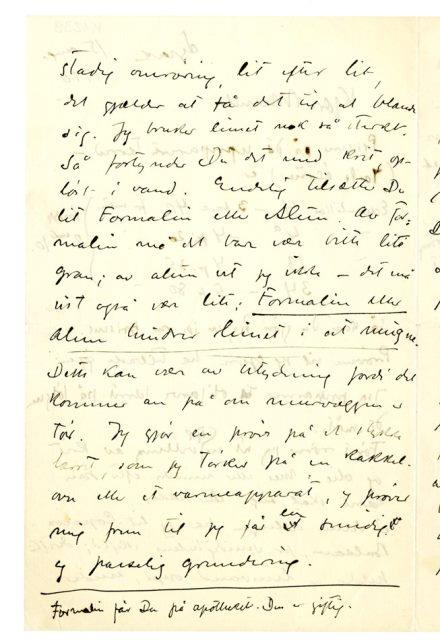 stadig omrøring, lit efter lit,
det gjælder at få det til at blande
sig. Jeg bruker limet nok så sterkt.
Så fortynder Du det med krit op-
løst i vand. Endelig tilsætter Du
lit Formalin eller Alun. Av For-
malin må det bare være bitte lite
gran; av alun vet jeg ikke – det må
vist også være lite; Formalin eller
alun hindrer limet i at mugne.
Dette kan være av betydning fordi det
kommer an på om murvæggen er
tør. Jeg gjør en prøve på et stykke
som jeg tørker på en kakkel-
ovn eller et varmeapparat, og prøver
mig frem til jeg får en smidig
og passelig grundering.
Formalin får Du på apotheket. Den er giftig.